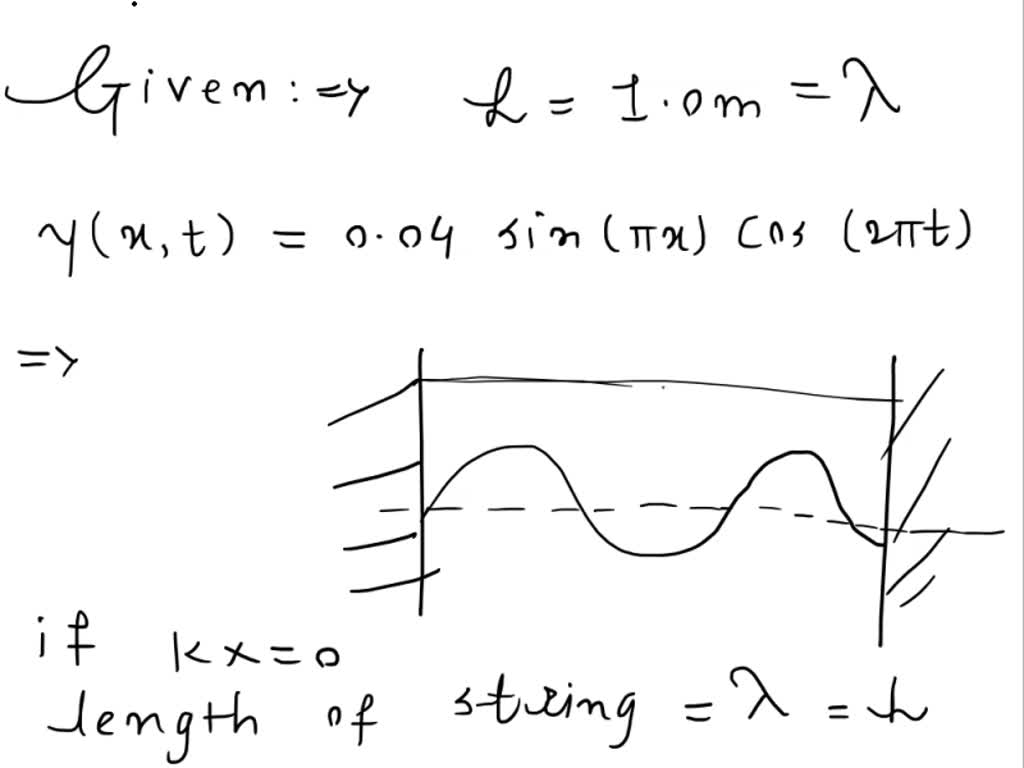 Given :=> L = 1.0m = λ
y(x,t) = 0.04 sin (πx) cos (2πt)
=>
if kx=0
length of string = λ = L